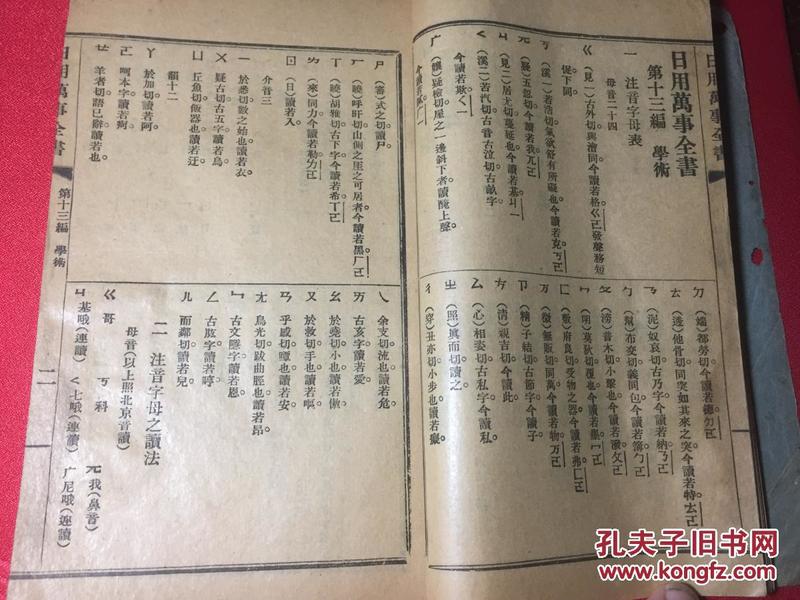 日用萬事全書
日用萬事全書
第十三編　學術
一　注音字母表
母音二十四
ㄍ（見一）古外切與澮同今讀若格ㄍㄜ發聲務短
促下同
ㄎ（溪一）若浩切氣欲舒有所礙也今讀若克ㄎㄜ
ㄐ（見二）居尤切延蔓也今讀若基ㄐㄧ
今讀若欺ㄑㄧ
ㄉ（端）都勞切今讀若德ㄉㄜ
ㄊ（透）他骨切同突如其來之突今讀若特ㄊㄜ
ㄋ（泥）奴亥切古乃字今讀若納ㄋㄜ
ㄅ（幫）布交切義同包今讀若簿ㄅㄜ
ㄆ（滂）普木切小擊也今讀若潑ㄆㄜ
ㄈ（敷）府良切受物之器今讀若弗ㄈㄜ
ㄗ（精）子結切古節字今讀子
ㄘ（清）親吉切今讀此
ㄙ（心）相姿切古私字今讀私
ㄓ（照）真而切讀之
ㄔ（穿）丑亦切小步也讀若癡
ㄕ（審）式之切讀尸
ㄏ（曉）呼旰切山側之里之可居者今讀若黑ㄏㄜ
ㄒ（曉）胡雅切古下字今讀若希ㄒㄧ
ㄌ（來）同力今讀若勒ㄌㄜ
ㄖ（日）讀若入
介音三
ㄧ　於悉切數之始也讀若衣
ㄨ　疑古切古五字讀若烏
ㄩ　丘魚切飯器也讀若迂
韻十二
ㄚ　於加切讀若阿
ㄛ　呵本字讀若
ㄝ　羊者切語已辭讀若也
ㄟ　余支切流也讀若危
ㄞ　古亥字讀若愛
ㄠ　於堯切小也讀若傲
ㄡ　於救切手也讀若嘔
ㄢ　乎感切嘾也讀若安
ㄤ　烏光切跛曲脛也讀若昂
ㄣ　古文隱字讀若恩
ㄥ　古肱字讀若哼
ㄦ　而鄰切讀若兒
二　注音字母之讀法
母音（以上照北京音讀）
ㄍ　哥　ㄎ　科　兀　我（鼻音）
ㄐ　基哦（連讀）　ㄑ　七哦（連讀）　广　尼哦（連讀）
日用萬事全書　第十三編　學術　二
孔夫子旧书网
KONGFZ.COM